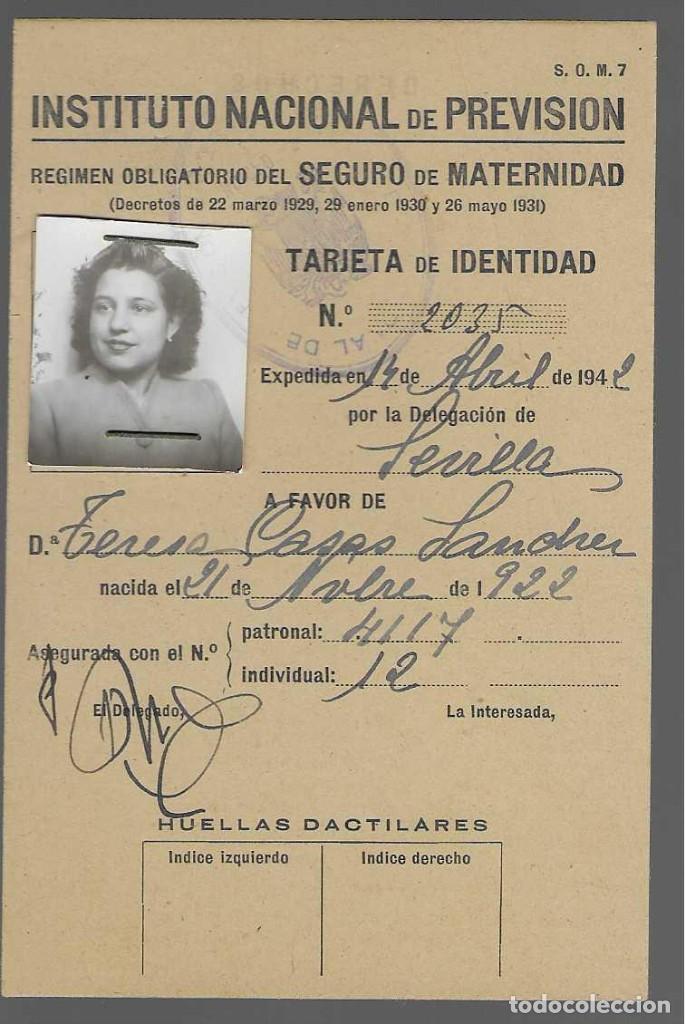 S. O. M. 7
INSTITUTO NACIONAL DE PREVISION
REGIMEN OBLIGATORIO DEL SEGURO DE MATERNIDAD
(Decretos de 22 marzo 1929, 29 enero 1930 y 26 mayo 1931)
TARJETA DE IDENTIDAD
N.º 2035
Expedida en 14 de Abril de 1942
por la Delegación de
Sevilla
A FAVOR DE
D.ª Teresa Casas Sanches
nacida el 21 de Nvbre de 1922
Asegurada con el N.º
patronal: 4117
individual: 12
El Delegado,
La Interesada,
HUELLAS DACTILARES
Indice izquierdo
Indice derecho
AL DE
todocoleccion